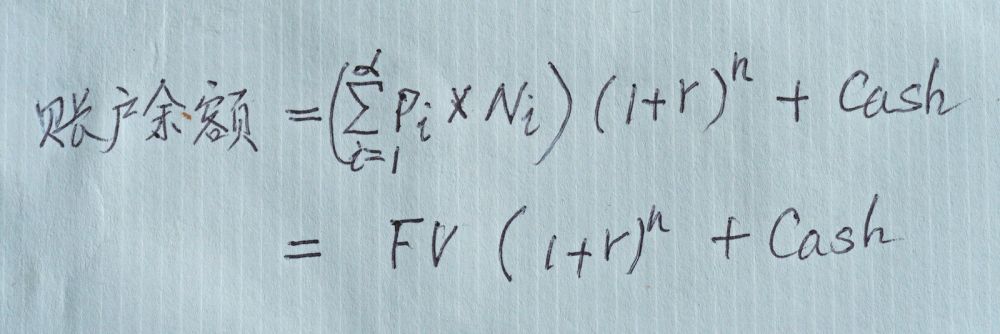 账户余额 = (∑_{i=1}^{α} P_i × N_i) (1+r)^n + Cash
= FV (1+r)^n + Cash